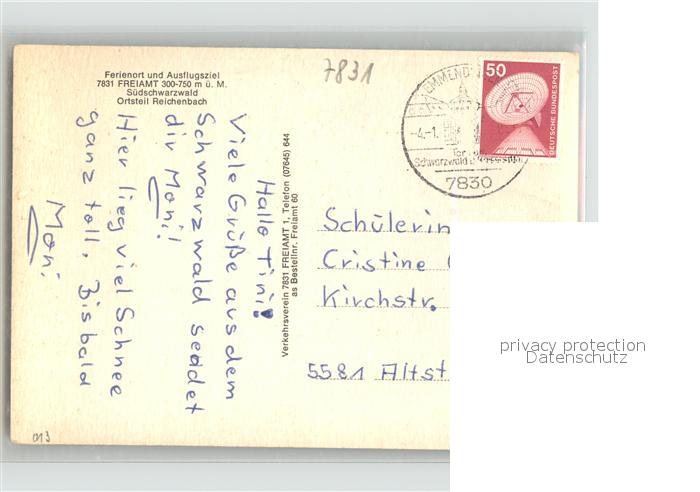 7831
Ferienort und Ausflugsziel
7831 FREIAMT 300-750 m ü. M.
Südschwarzwald
Ortsteil Reichenbach
Hallo Tini!
Viele Grüße aus dem
Schwarzwald sendet
dir Moni!
Hier lieg viel Schnee
ganz toll. Bis bald
Moni
Verkehrsverein 7831 FREIAMT 1, Telefon (07645) 644
as Bestellnr. Freiamt 60
EMMENDINGEN
-4.-1.
Schwarzwald
7830
50
DEUTSCHE BUNDESPOST
Schülerin
Cristine
Kirchstr.
5581 Altst
privacy protection
Datenschutz
013